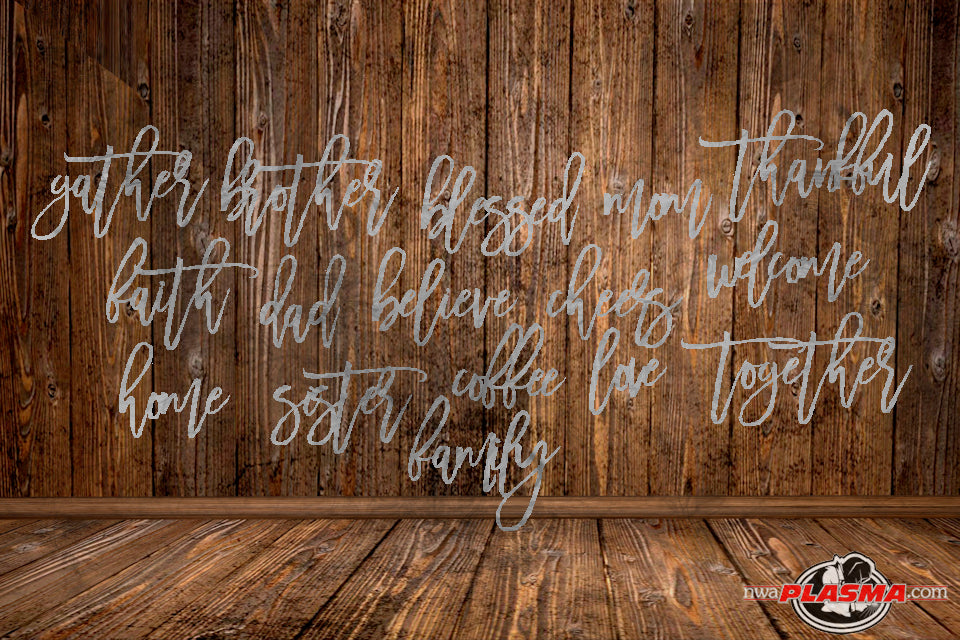 gather brother blessed mom thankful
faith dad believe cheers welcome
home sister coffee love together
family
nwaPLASMA.com